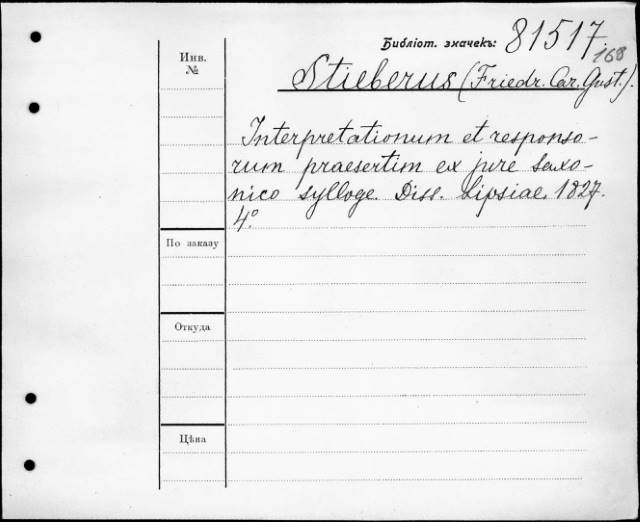 Библіот. значекъ: 81517.
168
Инв.
№
Stieberus (Friedr. Car. Gust.).
Interpretationum et responso-
rum praesertim ex jure saxo-
nico sylloge. Diss. Lipsiae. 1827.
4°
По заказу
Откуда
Цѣна